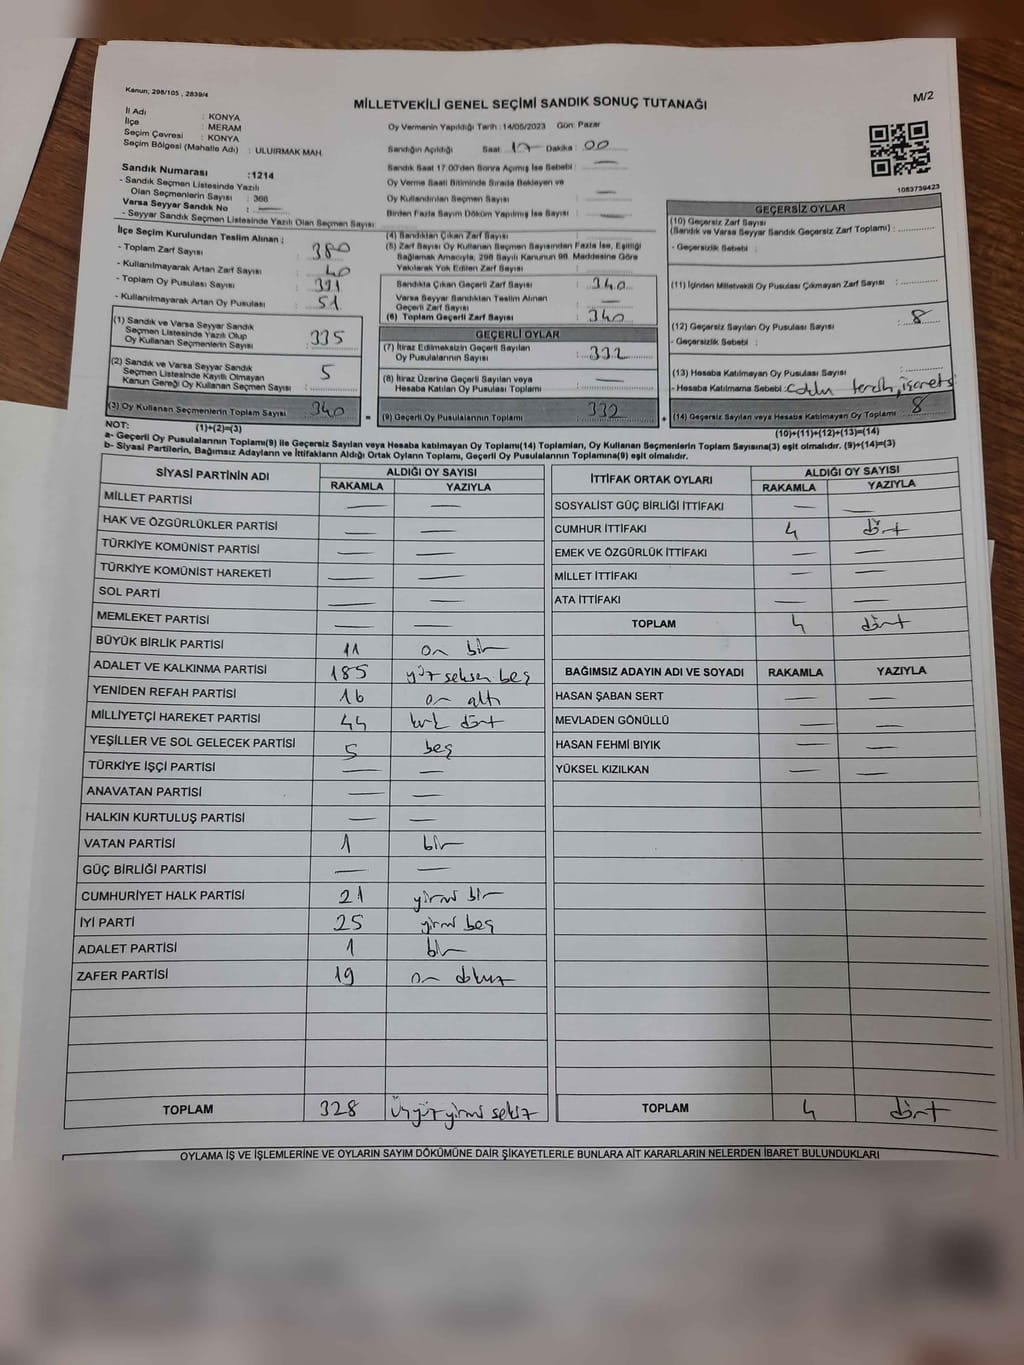 Kanun, 298/105 , 2839/4
MİLLETVEKİLİ GENEL SEÇİMİ SANDIK SONUÇ TUTANAĞI
M/2
İl Adı : KONYA
İlçe : MERAM
Seçim Çevresi : KONYA
Seçim Bölgesi (Mahalle Adı) : ULUIRMAK MAH.
Sandık Numarası :1214
- Sandık Seçmen Listesinde Yazılı
Olan Seçmenlerin Sayısı : 366
Varsa Seyyar Sandık No : —
- Seyyar Sandık Seçmen Listesinde Yazılı Olan Seçmen Sayısı
Oy Vermenin Yapıldığı Tarih :14/05/2023 Gün: Pazar
Sandığın Açıldığı Saat: 17 Dakika : 00
Sandık Saat 17.00'den Sonra Açılmış İse Sebebi : —
Oy Verme Saati Bitiminde Sırada Bekleyen ve
Oy Kullandırılan Seçmen Sayısı : —
Birden Fazla Sayım Döküm Yapılmış İse Sayısı : —
1083739423
İlçe Seçim Kurulundan Teslim Alınan ;
- Toplam Zarf Sayısı : 380
- Kullanılmayarak Artan Zarf Sayısı : 40
- Toplam Oy Pusulası Sayısı : 391
- Kullanılmayarak Artan Oy Pusulası : 51
(1) Sandık ve Varsa Seyyar Sandık
Seçmen Listesinde Yazılı Olup
Oy Kullanan Seçmenlerin Sayısı : 335
(2) Sandık ve Varsa Seyyar Sandık
Seçmen Listesinde Kayıtlı Olmayan
Kanun Gereği Oy Kullanan Seçmen Sayısı : 5
(3) Oy Kullanan Seçmenlerin Toplam Sayısı : 340
(4) Sandıktan Çıkan Zarf Sayısı :
(5) Zarf Sayısı Oy Kullanan Seçmen Sayısından Fazla İse, Eşitliği
Sağlamak Amacıyla, 298 Sayılı Kanunun 98. Maddesine Göre
Yakılarak Yok Edilen Zarf Sayısı :
Sandıkta Çıkan Geçerli Zarf Sayısı : 340
Varsa Seyyar Sandıktan Teslim Alınan
Geçerli Zarf Sayısı : —
(6) Toplam Geçerli Zarf Sayısı : 340
GEÇERLİ OYLAR
(7) İtiraz Edilmeksizin Geçerli Sayılan
Oy Pusulalarının Sayısı : 332
(8) İtiraz Üzerine Geçerli Sayılan veya
Hesaba Katılan Oy Pusulaları Toplamı : —
= (9) Geçerli Oy Pusulalarının Toplamı : 332
GEÇERSİZ OYLAR
(10) Geçersiz Zarf Sayısı
(Sandık ve Varsa Seyyar Sandık Geçersiz Zarf Toplamı) :
- Geçersizlik Sebebi :
(11) İçinden Milletvekili Oy Pusulası Çıkmayan Zarf Sayısı :
(12) Geçersiz Sayılan Oy Pusulası Sayısı : 8
- Geçersizlik Sebebi :
(13) Hesaba Katılmayan Oy Pusulası Sayısı :
- Hesaba Katılmama Sebebi : tercih, işareti
+ (14) Geçersiz Sayılan veya Hesaba Katılmayan Oy Toplamı : 8
NOT: (1)+(2)=(3)
(10)+(11)+(12)+(13)=(14)
a- Geçerli Oy Pusulalarının Toplamı(9) ile Geçersiz Sayılan veya Hesaba katılmayan Oy Toplamı(14) Toplamları, Oy Kullanan Seçmenlerin Toplam Sayısına(3) eşit olmalıdır. (9)+(14)=(3)
b- Siyasi Partilerin, Bağımsız Adayların ve İttifakların Aldığı Ortak Oyların Toplamı, Geçerli Oy Pusulalarının Toplamına(9) eşit olmalıdır.
SİYASİ PARTİNİN ADI ALDIĞI OY SAYISI
RAKAMLA YAZIYLA
MİLLET PARTİSİ — —
HAK VE ÖZGÜRLÜKLER PARTİSİ — —
TÜRKİYE KOMÜNİST PARTİSİ — —
TÜRKİYE KOMÜNİST HAREKETİ — —
SOL PARTİ — —
MEMLEKET PARTİSİ — —
BÜYÜK BİRLİK PARTİSİ 11 on bir
ADALET VE KALKINMA PARTİSİ 185 yüz seksen beş
YENİDEN REFAH PARTİSİ 16 on altı
MİLLİYETÇİ HAREKET PARTİSİ 44 kırk dört
YEŞİLLER VE SOL GELECEK PARTİSİ 5 beş
TÜRKİYE İŞÇİ PARTİSİ — —
ANAVATAN PARTİSİ — —
HALKIN KURTULUŞ PARTİSİ — —
VATAN PARTİSİ 1 bir
GÜÇ BİRLİĞİ PARTİSİ — —
CUMHURİYET HALK PARTİSİ 21 yirmi bir
İYİ PARTİ 25 yirmi beş
ADALET PARTİSİ 1 bir
ZAFER PARTİSİ 19 on dokuz
TOPLAM 328 üçyüz yirmi sekiz
İTTİFAK ORTAK OYLARI ALDIĞI OY SAYISI
RAKAMLA YAZIYLA
SOSYALİST GÜÇ BİRLİĞİ İTTİFAKI — —
CUMHUR İTTİFAKI 4 dört
EMEK VE ÖZGÜRLÜK İTTİFAKI — —
MİLLET İTTİFAKI — —
ATA İTTİFAKI — —
TOPLAM 4 dört
BAĞIMSIZ ADAYIN ADI VE SOYADI RAKAMLA YAZIYLA
HASAN ŞABAN SERT — —
MEVLADEN GÖNÜLLÜ — —
HASAN FEHMİ BIYIK — —
YÜKSEL KIZILKAN — —
TOPLAM 4 dört
OYLAMA İŞ VE İŞLEMLERİNE VE OYLARIN SAYIM DÖKÜMÜNE DAİR ŞİKAYETLERLE BUNLARA AİT KARARLARIN NELERDEN İBARET BULUNDUKLARI